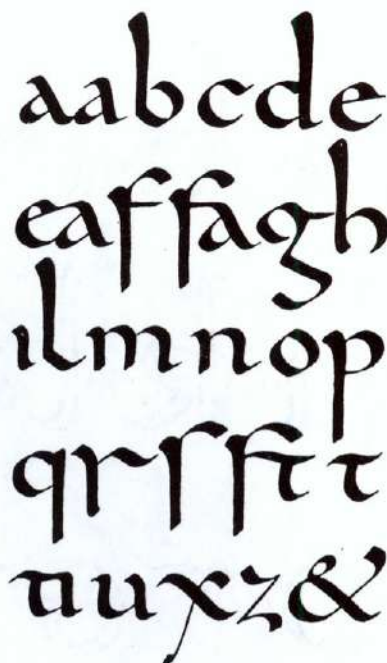 aabcde
eaffagh
ılmnop
qrſftt
tiuxz&